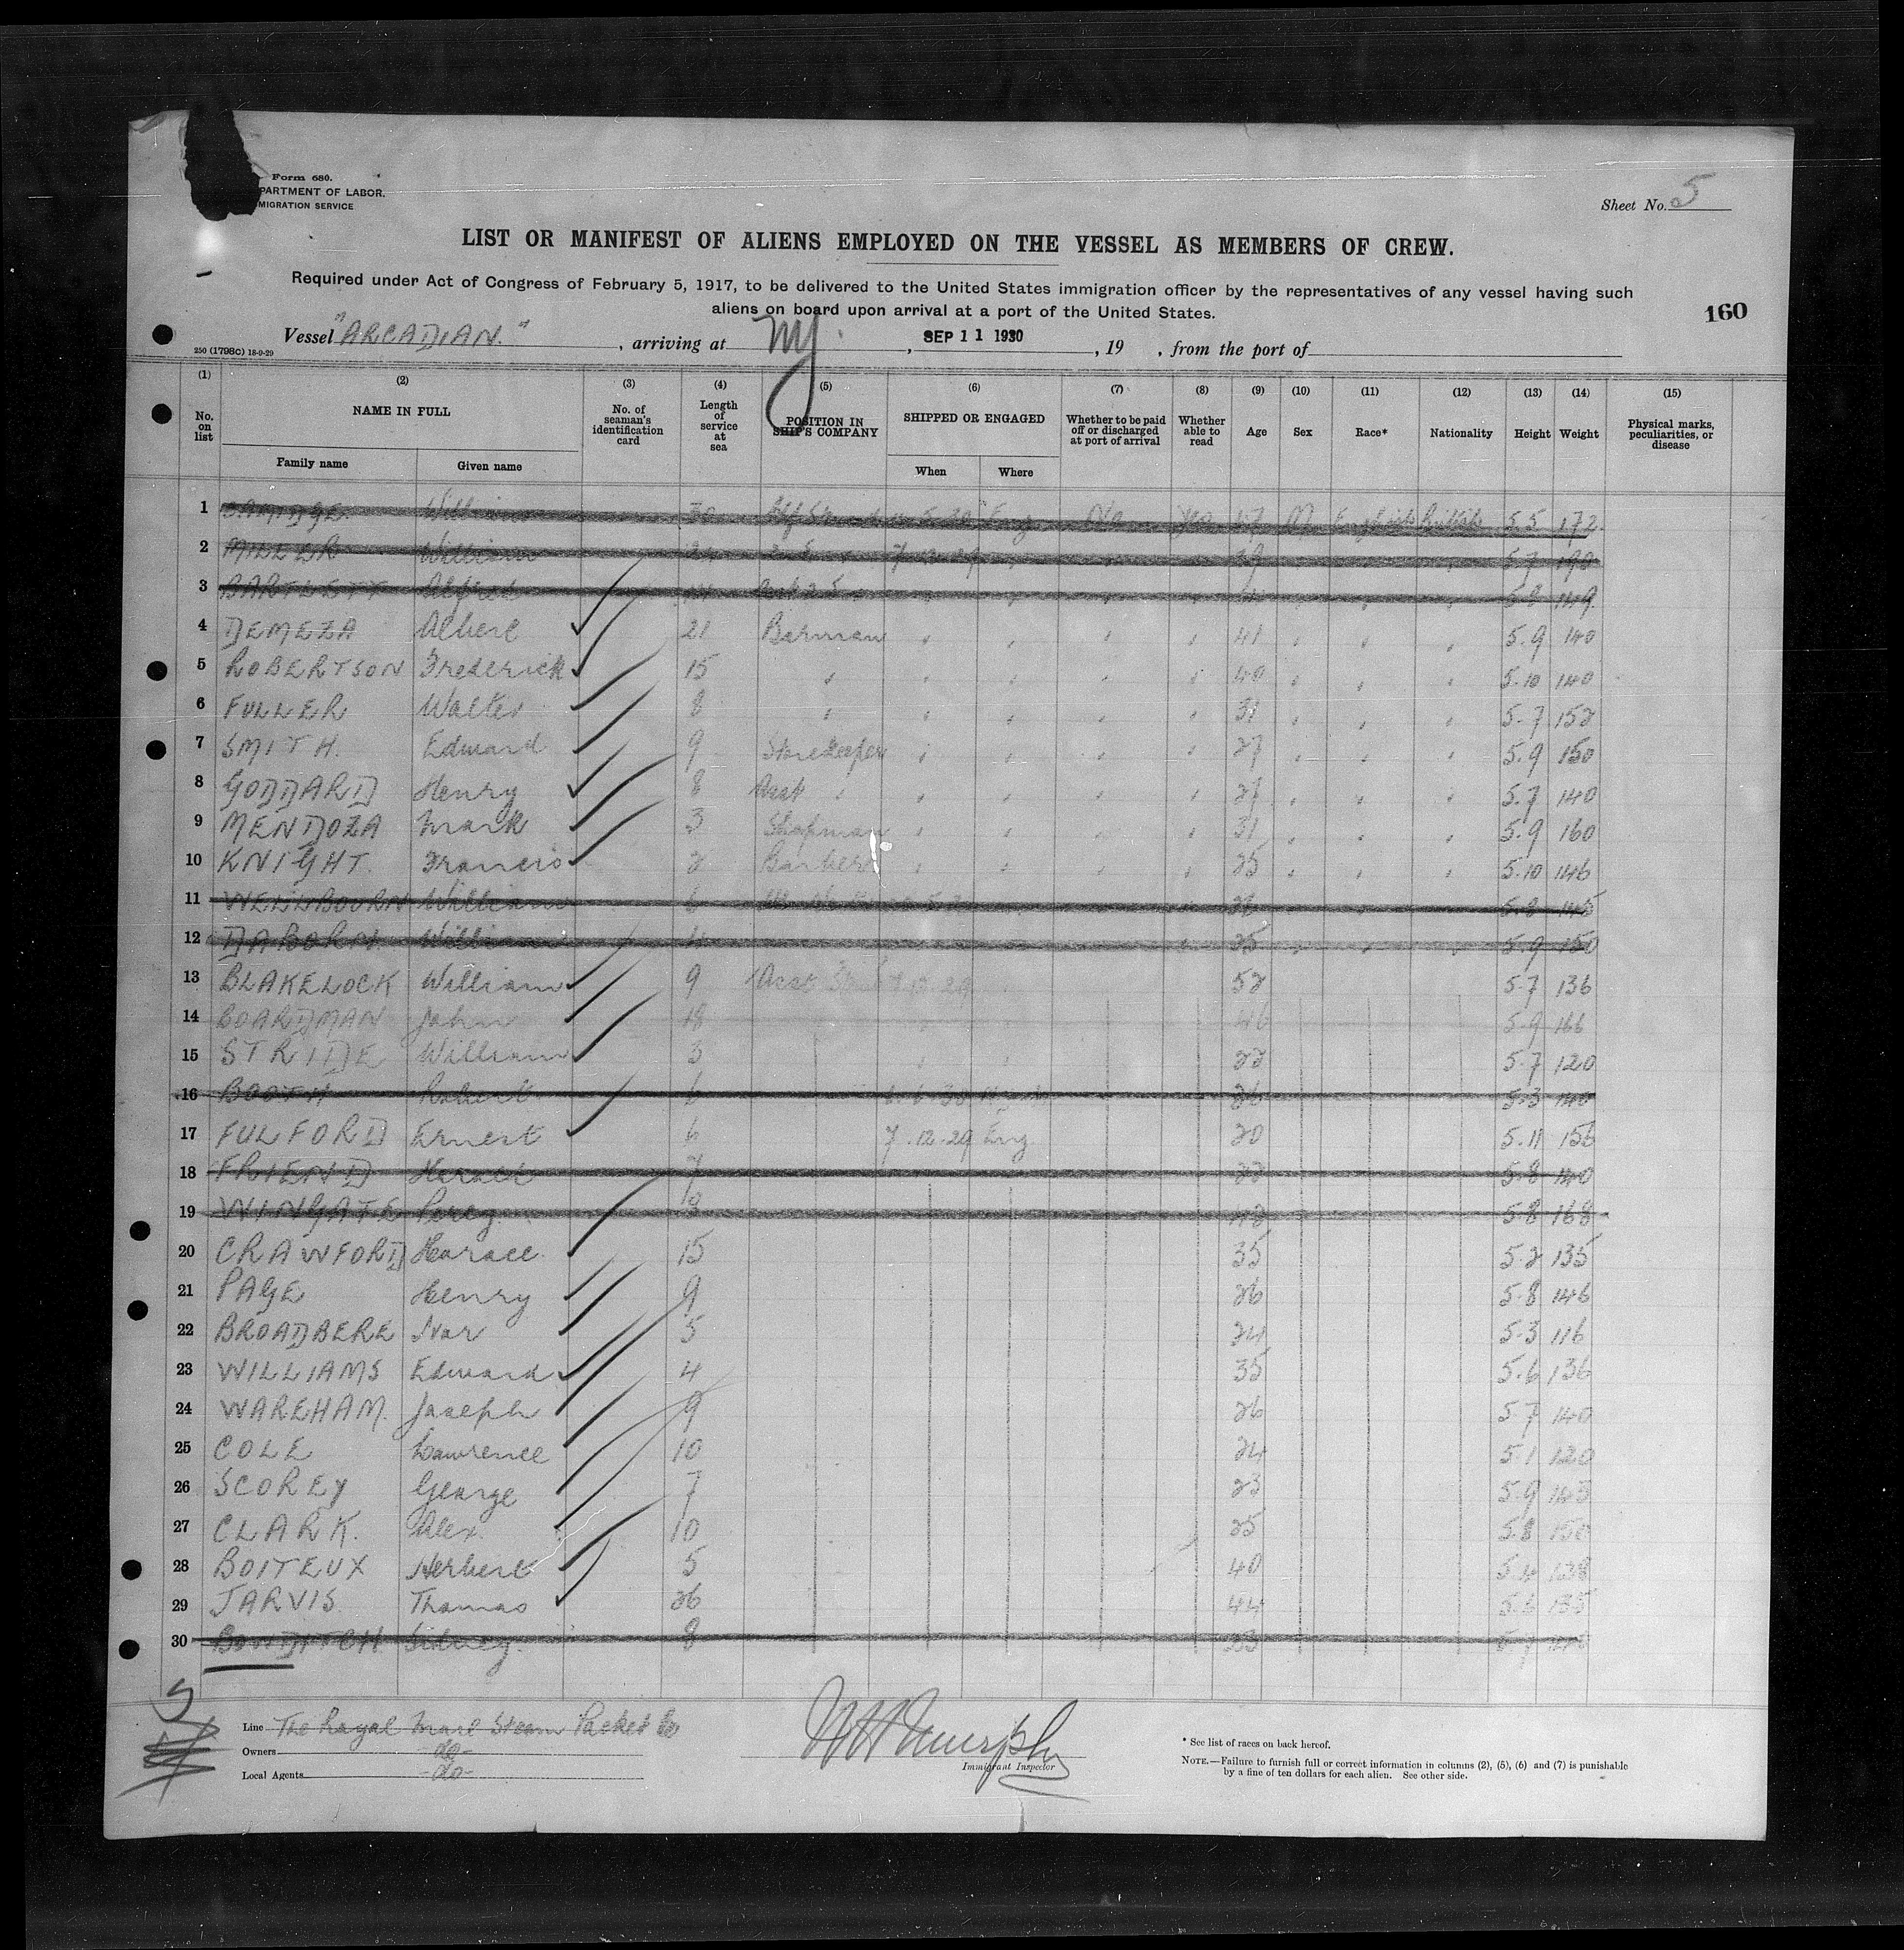 Form 680.
PARTMENT OF LABOR,
MIGRATION SERVICE
Sheet No. 5
LIST OR MANIFEST OF ALIENS EMPLOYED ON THE VESSEL AS MEMBERS OF CREW.
Required under Act of Congress of February 5, 1917, to be delivered to the United States immigration officer by the representatives of any vessel having such
aliens on board upon arrival at a port of the United States.
160
Vessel "ARCADIAN." , arriving at NY. , SEP 11 1930 , 19 , from the port of
250 (1798c) 18-9-29
(1) (2) (3) (4) (5) (6) (7) (8) (9) (10) (11) (12) (13) (14) (15)
No. on list NAME IN FULL No. of seaman's identification card Length of service at sea POSITION IN SHIP'S COMPANY SHIPPED OR ENGAGED Whether to be paid off or discharged at port of arrival Whether able to read Age Sex Race* Nationality Height Weight Physical marks, peculiarities, or disease
Family name Given name When Where
1 William 30 Eng No Yes 47 M English British 5.5 172
2 MILLER William 5.7
3 BARTLETT Alfred 5.8 149
4 DEMEZA Albert 21 Barman " " " " 41 " " " 5.9 140
5 ROBERTSON Frederick 15 " " " " " 40 " " " 5.10 140
6 FULLER Walter 8 " " " " " 31 " " " 5.7 152
7 SMITH. Edward 9 Storekeeper " " " " 27 " " " 5.9 150
8 GODDARD Henry 8 Asst " " " " " 27 " " " 5.7 140
9 MENDOZA Mark 3 Shopman " " " " 31 " " " 5.9 160
10 KNIGHT. Francis 2 Barber " " " " 25 " " " 5.10 146
11 WELLBOURN William 6 5.8 145
12 DABORN. William 4 25 5.9 150
13 BLAKELOCK William 9 Asst 7.12.29 52 5.7 136
14 BOARDMAN John 18 46 5.9 166
15 STRIDE William 3 22 5.7 120
16 BOOTH Robert 6 26 5.3 140
17 FULFORD Ernest 6 7.12.29 Eng 20 5.11 156
18 FRIEND Horace 7 22 5.8 140
19 WINGATE Percy. 18 42 5.8 168
20 CRAWFORD Horace 15 35 5.2 135
21 PAGE Henry 9 26 5.8 146
22 BROADBERE Ivor 5 24 5.3 116
23 WILLIAMS Edward 4 35 5.6 136
24 WAREHAM. Joseph 9 26 5.7 140
25 COLE Lawrence 10 24 5.1 120
26 SCOREY George 7 23 5.9 143
27 CLARK. Alex. 10 25 5.8 150
28 BOITEUX Herbert 5 40 5.4 138
29 JARVIS. Thomas 26 44 5.6 135
30 BOWDITCH Sidney. 8 23 5.7
Line The Royal Mail Steam Packet Co
Owners -do-
Local Agents -do-
Immigrant Inspector
* See list of races on back hereof.
NOTE.—Failure to furnish full or correct information in columns (2), (5), (6) and (7) is punishable
by a fine of ten dollars for each alien. See other side.